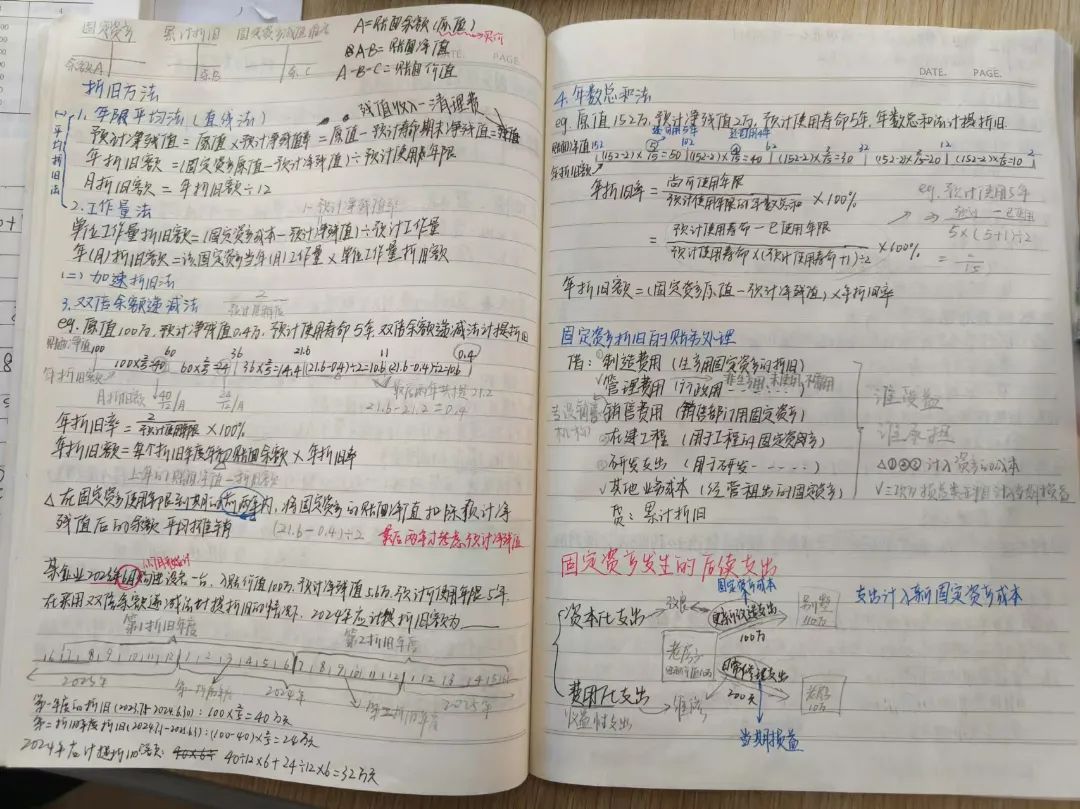 固定资产 累计折旧 固定资产减值准备
余额A 余.B 余.C
A=账面余额(原值)
A-B=账面净值
A-B-C=账面价值
DATE. PAGE.
折旧方法
残值收入-清理费
(一)平均折旧法
1. 年限平均法(直线法)
预计净残值=原值×预计净残值率=原值-预计寿命期末净残值=残值
年折旧额=(固定资产原值-预计净残值)÷预计使用寿命年限
月折旧额=年折旧额÷12
2. 工作量法
1-预计净残值率
单位工作量折旧额=(固定资产成本-预计净残值)÷预计工作量
年(月)折旧额=该固定资产当年(月)工作量×单位工作量折旧额
(二)加速折旧法
3. 双倍余额递减法 2/预计使用年限
eg. 原值100万, 预计净残值0.4万, 预计使用寿命5年, 双倍余额递减法计提折旧
账面净值100 60 36 21.6 11 0.4
100×2/5=40 60×2/5=24 36×2/5=14.4 (21.6-0.4)÷2=10.6 (21.6-0.4)÷2=10.6
年折旧额
月折旧额 40/12/月 24/12/月
最后两年共提21.2
21.6-21.2=0.4
年折旧率=2/预计使用年限×100%
年折旧额=每个折旧年度年初账面余额×年折旧率
上年的账面净值-折旧额
△在固定资产使用年限到期的前两年内, 将固定资产的账面净值扣除预计净
残值后的余额平均摊销 (21.6-0.4)÷2 最后两年才考虑预计净残值
某企业2023年6月购进设备一台, 入账价值100万, 预计净残值5.6万, 预计可使用年限5年,
在采用双倍余额递减法计提折旧的情况下, 2024年应计提折旧额为____
第1折旧年度 第2折旧年度
6 7 8 9 10 11 12 1 2 3 4 5 6 7 8 9 10 11 12 1 2 3 4 5 6
2023年 2024年 2025年
第一折旧年度 第二折旧年度
第一年度的折旧(2023.7.1-2024.6.30): 100×2/5=40万元
第二折旧年度折旧(2024.7.1-2025.6.30): (100-40)×2/5=24万元
2024年应计提折旧 40÷12×6+24÷12×6=32万元
DATE. PAGE.
4. 年数总和法
eg. 原值152万, 预计净残值2万, 预计使用寿命5年, 年数总和法计提折旧
还可用5年 还可用4年
账面净值152 102 62 32 12 2
年折旧额 (152-2)×5/15=50 (152-2)×4/15=40 (152-2)×3/15=30 (152-2)×2/15=20 (152-2)×1/15=10
年折旧率=尚可使用年限/预计使用年限的年数总和×100%
=预计使用寿命-已使用年限/预计使用寿命×(预计使用寿命+1)÷2×100%
eg. 预计使用5年
预计-已使用
5×(5+1)÷2
=/15
年折旧额=(固定资产原值-预计净残值)×年折旧率
固定资产折旧的账务处理
借: ①制造费用(生产用固定资产的折旧)
√管理费用(行政用, 非生产用、未使用、不需用)
专设销售机构 销售费用(销售部门用固定资产)
②在建工程(用于工程的固定资产)
③研发支出(用于研发······)
√其他业务成本(经营租出的固定资产)
贷: 累计折旧
谁受益
谁承担
△①②③计入资产的成本
固定资产发生的后续支出
固定资产成本
资本化支出 改良 更新改造支出 100万 别墅 110万 支出计入新固定资产成本
老房子
账面价值10万
费用化支出 维修 日常修理支出 200元 老房 10万
收益性支出
当期损益